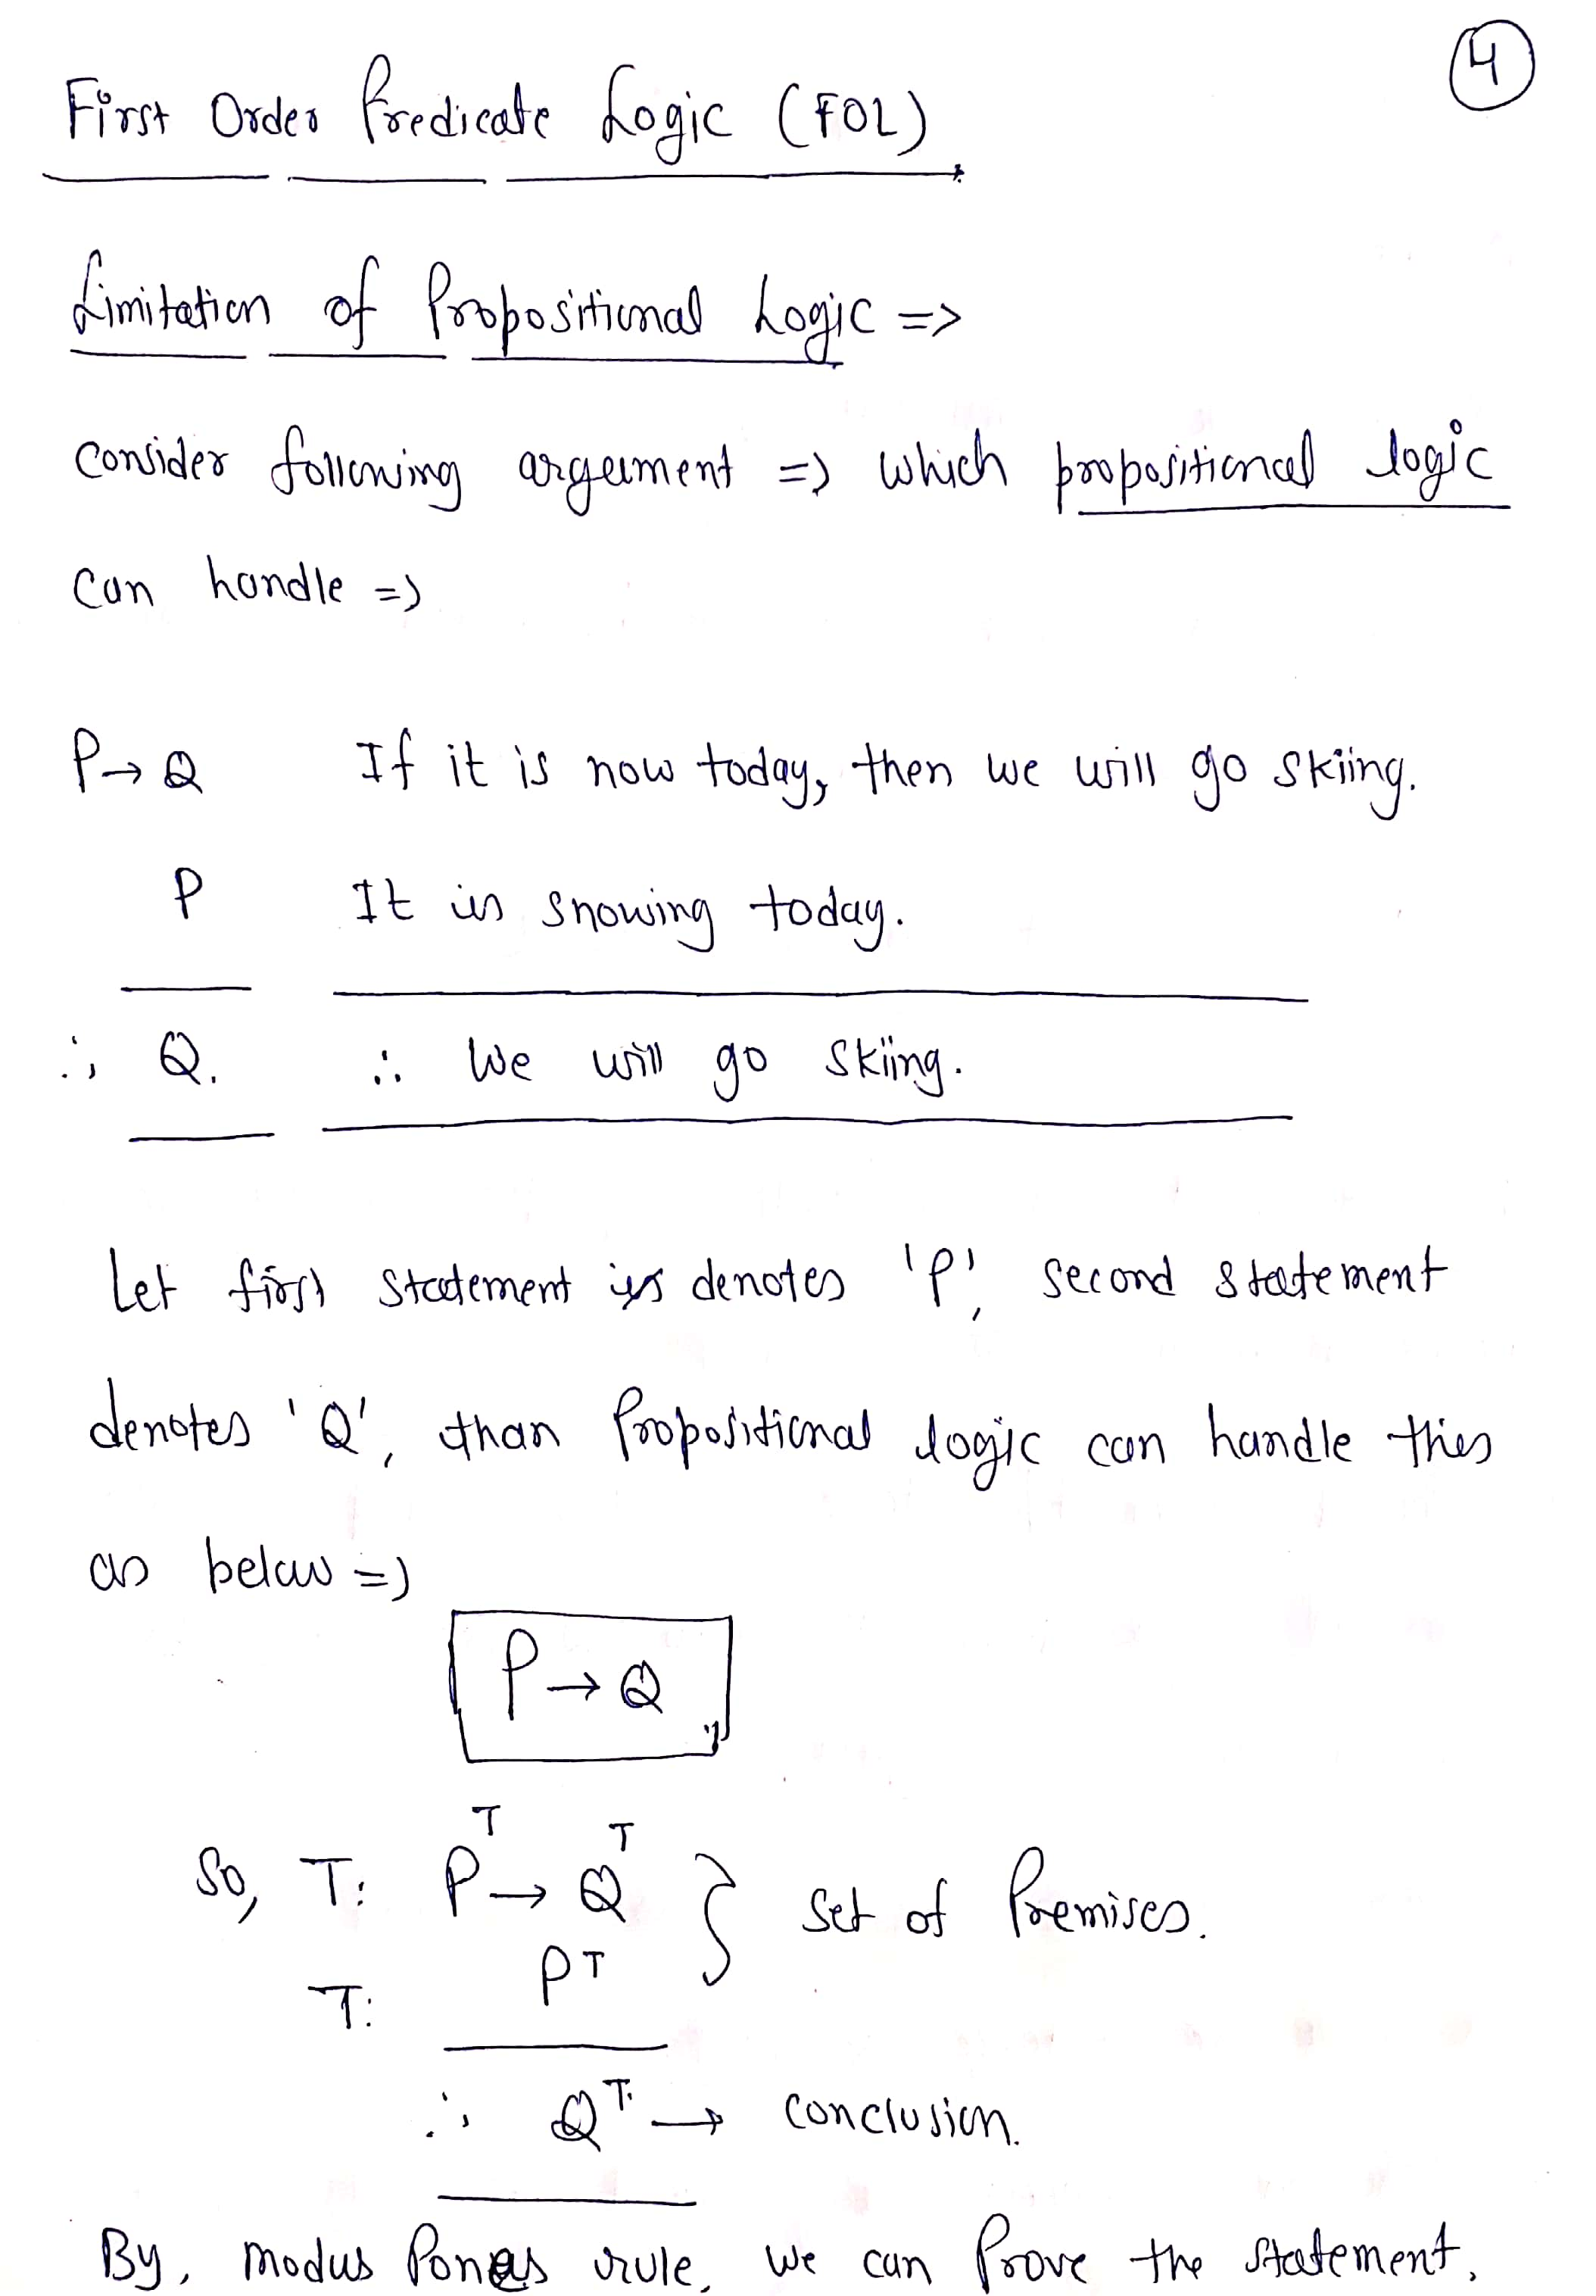 4
First Order Predicate Logic (FOL)
Limitation of Propositional Logic =>
Consider following argument => which propositional logic
can handle =>
P→Q If it is now today, then we will go skiing.
P It is snowing today.
∴ Q. ∴ We will go skiing.
Let first statement is denotes 'P', second statement
denotes 'Q', than Propositional logic can handle this
as below =>
P→Q
T T
So, T: P→Q } Set of Premises.
T: P T
∴ Q T. → Conclusion.
By, modus Pones rule, we can Prove the statement.